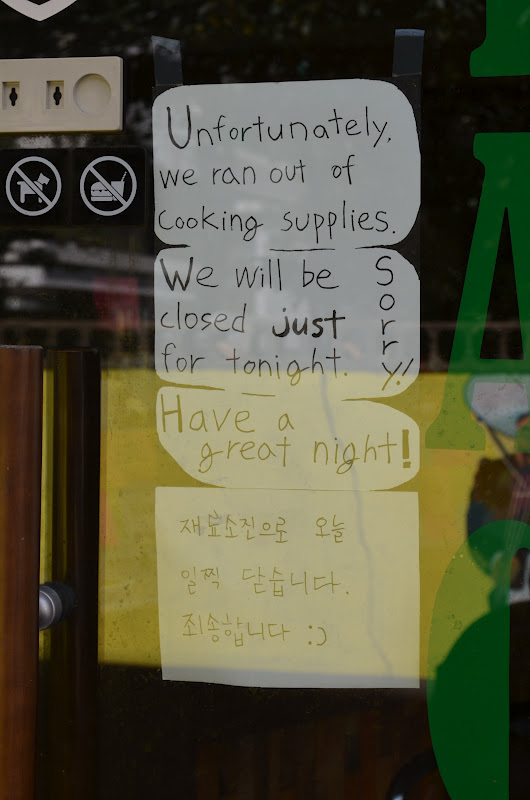 Unfortunately,
we ran out of
cooking supplies.
We will be
closed just
for tonight.
Sorry!
Have a
great night!
재료소진으로 오늘
일찍 닫습니다.
죄송합니다 :)